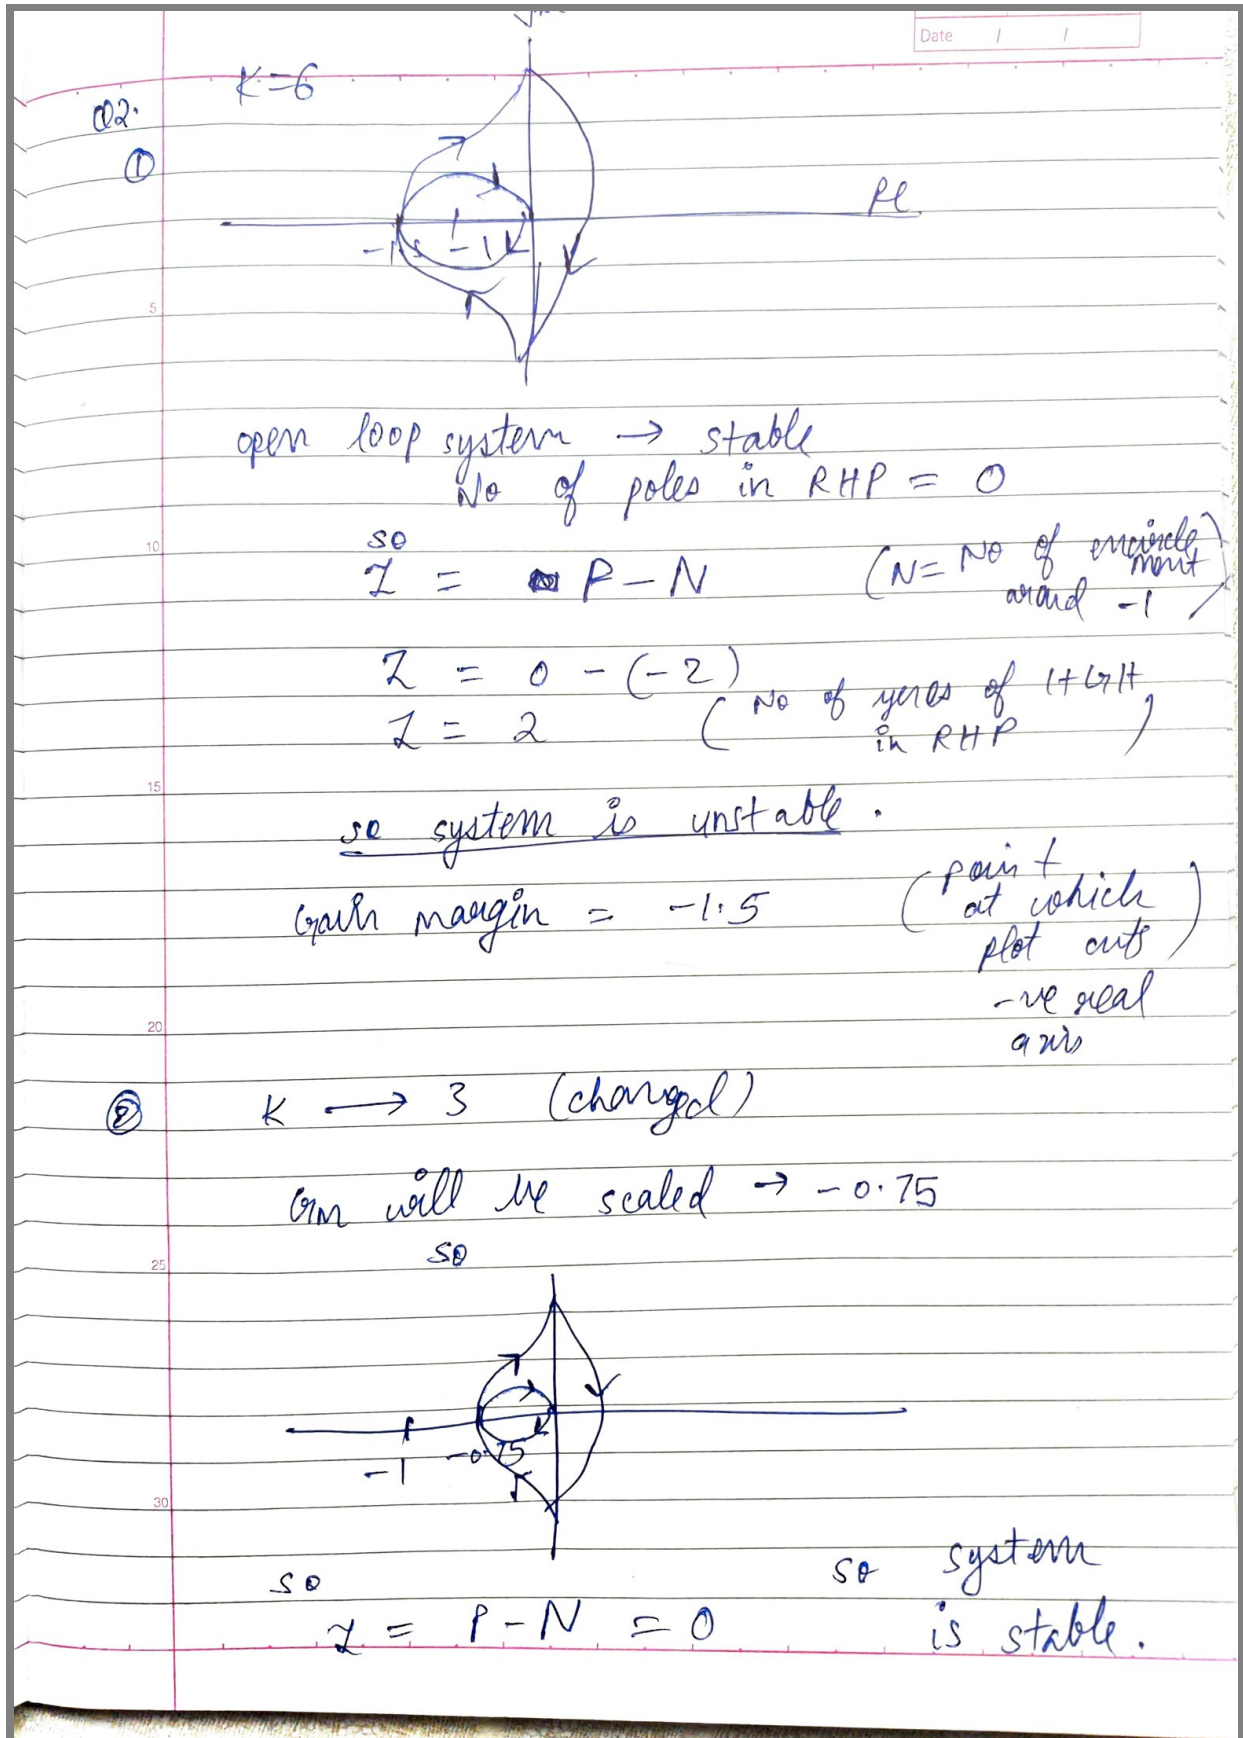 Date / /
K=6
Q2.
①
Re
-1.5 -1
5
open loop system → stable
No of poles in RHP = 0
10
so
Z = P - N (N = No of encirclement around -1)
Z = 0 - (-2)
Z = 2 (No of zeros of 1+GH in RHP)
15
so system is unstable.
Gain margin = -1.5 (point at which plot cuts -ve real axis)
20
② K → 3 (changed)
Gm will be scaled → -0.75
so
25
-1 -0.75
30
so
Z = P - N = 0 so system is stable.